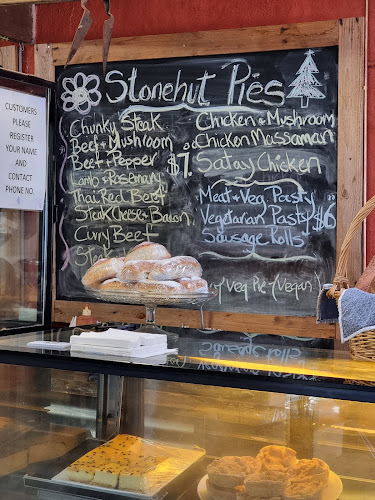 CUSTOMERS
PLEASE
REGISTER
YOUR NAME
AND
CONTACT
PHONE NO.
Stonehut Pies
Chunky Steak
Beef + Mushroom
Beef + Pepper
Lamb + Rosemary
Thai Red Beef
Steak Cheese + Bacon
Curry Beef
Steak
$7.00
Chicken + Mushroom
Chicken Massaman
Satay Chicken
Meat + Veg Pasty
Vegetarian Pasty
Sausage Rolls
$6
Veg Pie (Vegan)